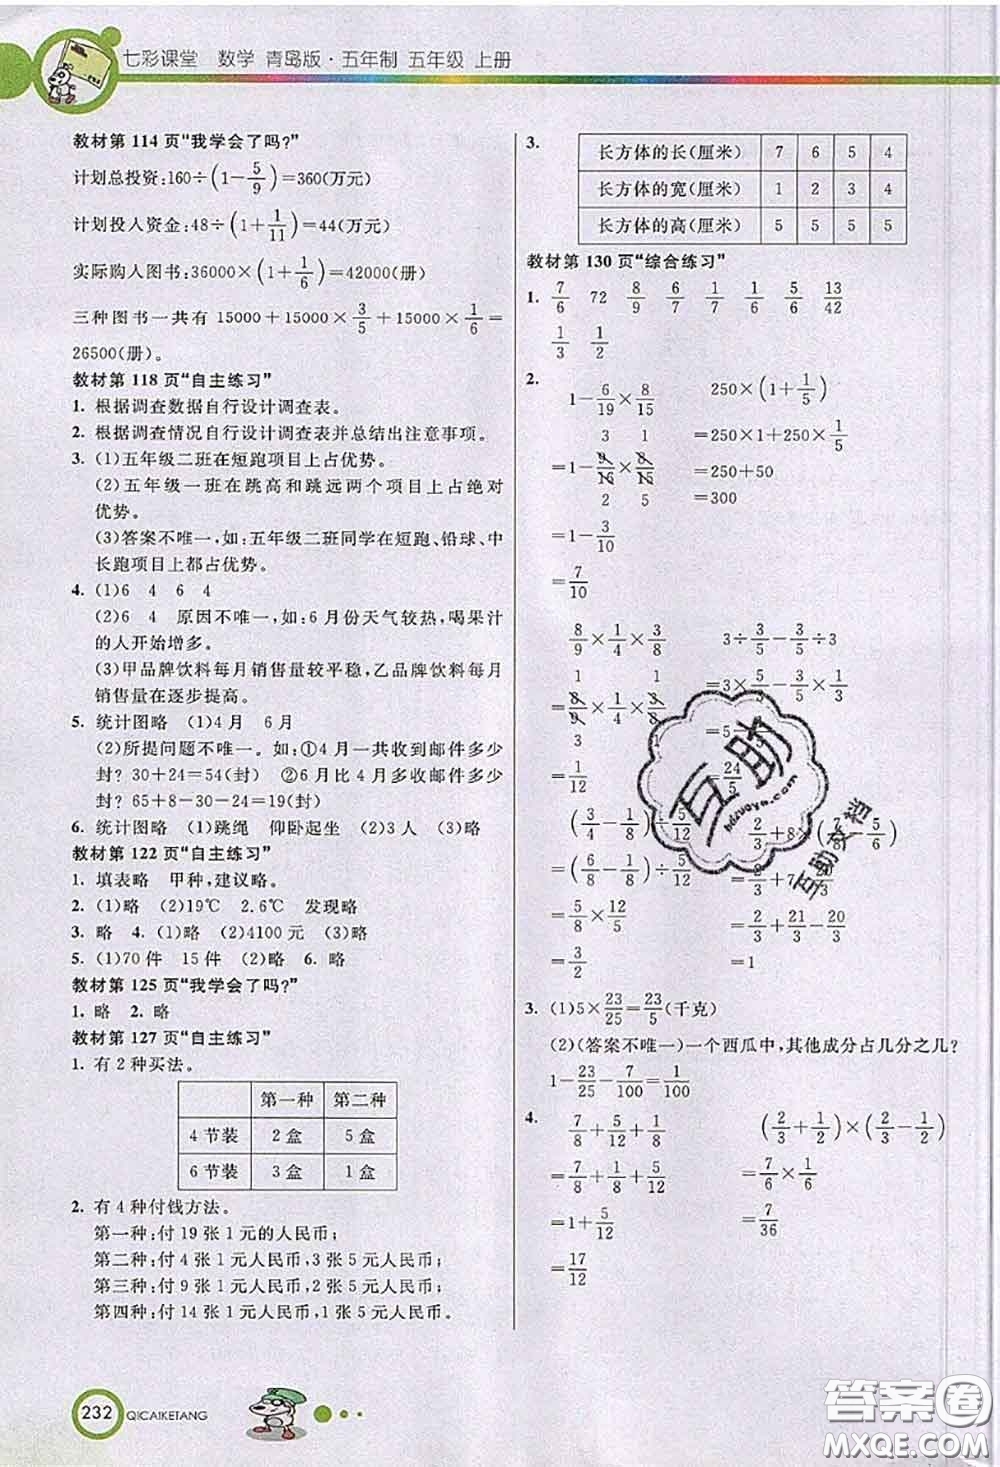 七彩课堂 数学 青岛版·五年制 五年级 上册
教材第 114 页“我学会了吗?”
计划总投资:160÷(1−5/9)=360(万元)
计划投入资金:48÷(1+1/11)=44(万元)
实际购入图书:36000×(1+1/6)=42000(册)
三种图书一共有 15000+15000×3/5+15000×1/6=
26500(册)。
教材第 118 页“自主练习”
1. 根据调查数据自行设计调查表。
2. 根据调查情况自行设计调查表并总结出注意事项。
3. (1)五年级二班在短跑项目上占优势。
(2)五年级一班在跳高和跳远两个项目上占绝对
优势。
(3)答案不唯一,如:五年级二班同学在短跑、铅球、中
长跑项目上都占优势。
4. (1)6 4 6 4
(2)6 4 原因不唯一,如:6月份天气较热,喝果汁
的人开始增多。
(3)甲品牌饮料每月销售量较平稳,乙品牌饮料每月
销售量在逐步提高。
5. 统计图略 (1)4月 6月
(2)所提问题不唯一。如:①4月一共收到邮件多少
封? 30+24=54(封) ②6月比4月多收邮件多少
封? 65+8−30−24=19(封)
6. 统计图略 (1)跳绳 仰卧起坐 (2)3人 (3)略
教材第 122 页“自主练习”
1. 填表略 甲种,建议略。
2. (1)略 (2)19℃ 2.6℃ 发现略
3. 略 4. (1)略 (2)4100元 (3)略
5. (1)70件 15件 (2)略 6. 略
教材第 125 页“我学会了吗?”
1. 略 2. 略
教材第 127 页“自主练习”
1. 有2种买法。
第一种 第二种
4节装 2盒 5盒
6节装 3盒 1盒
2. 有4种付钱方法。
第一种:付19张1元的人民币;
第二种:付4张1元人民币,3张5元人民币;
第三种:付9张1元人民币,2张5元人民币;
第四种:付14张1元人民币,1张5元人民币。
232 QICAIKETANG
3.
长方体的长(厘米) 7 6 5 4
长方体的宽(厘米) 1 2 3 4
长方体的高(厘米) 5 5 5 5
教材第 130 页“综合练习”
1. 7/6 72 8/9 6/7 1/7 1/6 5/6 13/42
1/3 1/2
2.
1−6/19×8/15 250×(1+1/5)
3 1
=1−9/16×8/15 =250×1+250×1/5
2 5 =250+50
=1−3/10 =300
=7/10
8/9×1/4×3/8 3÷3/5−3/5÷3
1 1
=8/9×1/4×3/8 =3×5/3−3/5×1/3
3 1 =5−
=1/12 =24/5
(3/4−1/8)÷5/12 2/3+8×(7/8−5/6)
=(6/8−1/8)÷5/12 =2/3+7−20/3
=5/8×12/5 =2/3+21/3−20/3
=3/2 =1
3. (1)5×23/25=23/5(千克)
(2)(答案不唯一)一个西瓜中,其他成分占几分之几?
1−23/25−7/100=1/100
4.
7/8+5/12+1/8 (2/3+1/2)×(2/3−1/2)
=7/8+1/8+5/12 =7/6×1/6
=1+5/12 =7/36
=17/12
互助
hdzuoye.com
互助文档
答案圈
MXQE.COM